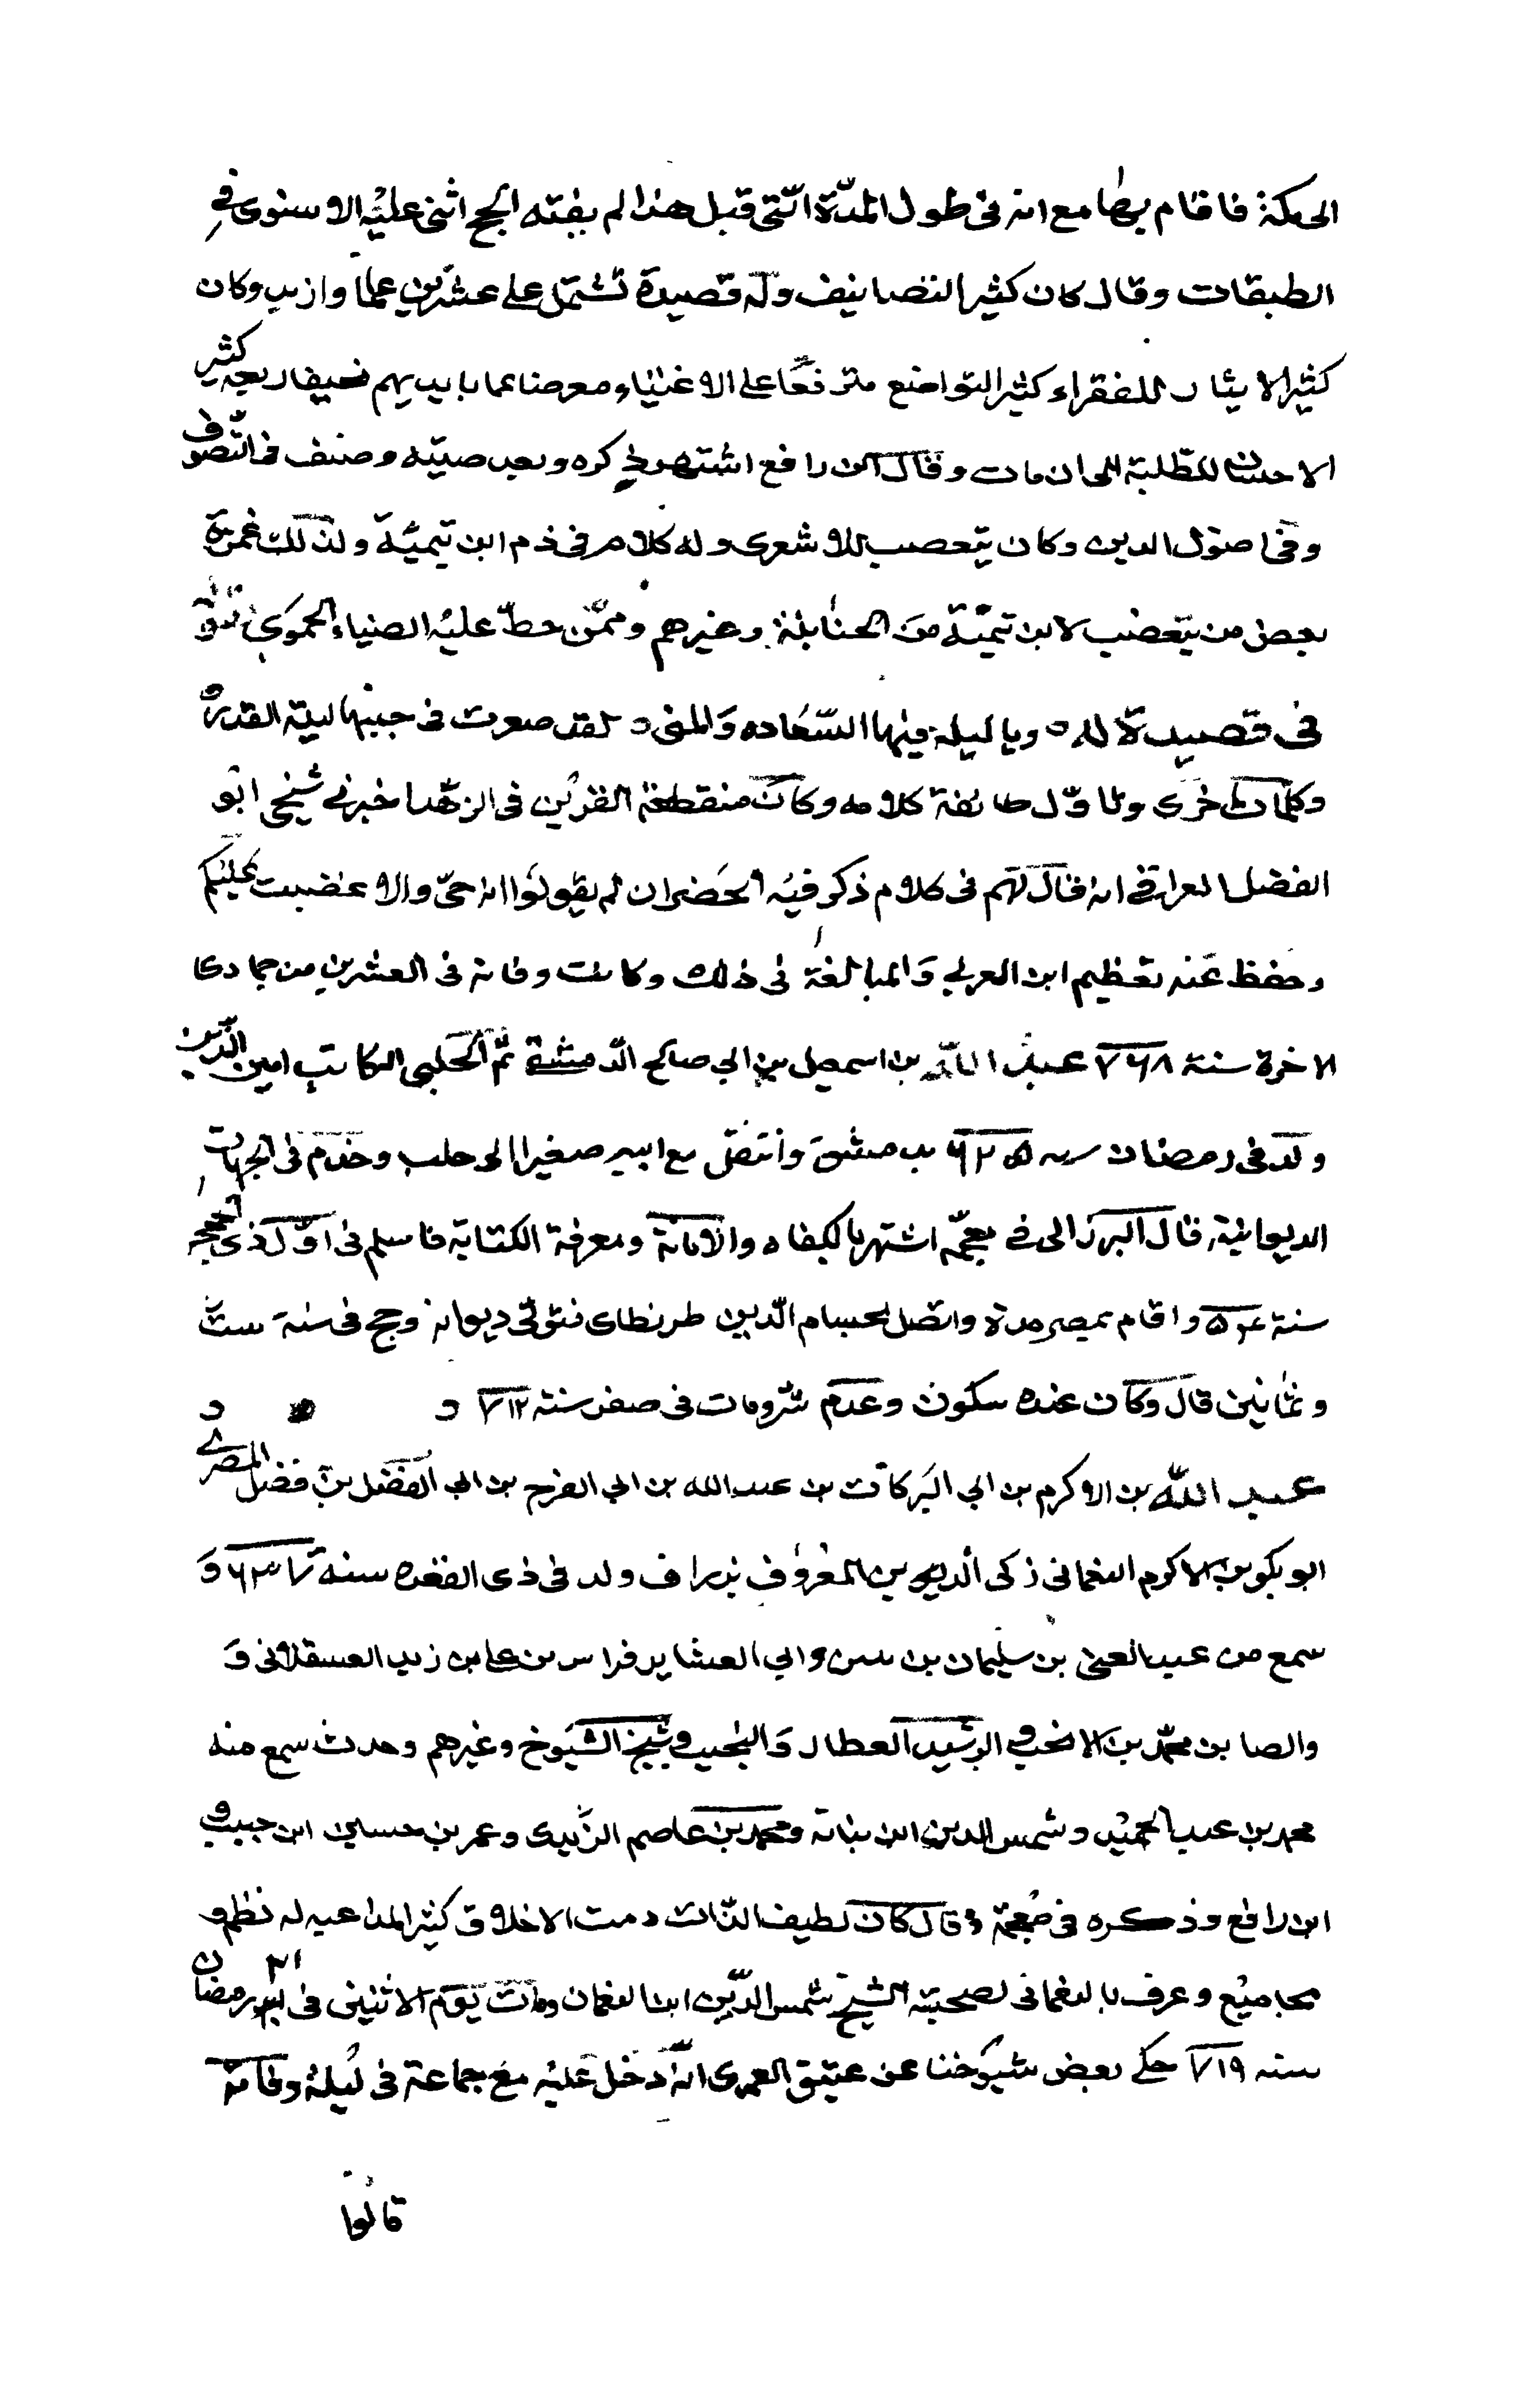 الى مكة فاقام بها مع انه فى طول المدّة التى قبل هذا لم يفته الحج اثنى عليه الاسنوى فى
الطبقات وقال كان كثير التصانيف وله قصيدة تشتمل على عشرين علما وازيد وكان
كثير الايثار للفقراء كثير التواضع مترفعا على الاغنياء معرضا عما بايديهم نحيفا ربعة كثير
الاحسان للطلبة الى ان مات وقال ابن رافع اشتهر ذكره وبعد صيته وصنف فى التصوف
وفى اصول الدين وكان يتعصب للاشعرى وله كلام فى ذم ابن تيمية ولذلك غمزه
بعض من يتعصب لابن تيمية من الحنابلة وغيرهم وممن حط عليه الضياء الحموى
فى قصيدة له ويا ليلة فيها السعاده والمنى لقد صغرت فى جنبها ليلة القدر
وكلمات اخرى وتاول طائفة كلامه وكان منقطعة القرين فى الزهد اخبرنى شيخى ابو
الفضل العراقى انه قال لهم فى كلام ذكر فيه الخضر ان لم يقولوا انه حى والا غضبت عليكم
وحفظ عنه تعظيم ابن العربى والمبالغة فى ذلك وكانت وفاته فى العشرين من جمادى
الاخرة سنة ٧٦٨ عبد الله بن اسمعيل بن ابى صالح الدمشقى ثم الحلبى الكاتب امين الدين
ولد فى رمضان سنه ٦٢٥ بدمشق وانتقل مع ابيه صغيرا الى حلب وخدم فى الجهات
الديوانية قال البرزالى فى معجمه اشتهر بالكفاه والامانة ومعرفة الكتابة فاسلم فى اول ذى الحجه
سنة واقام بمصر مدة واتصل بحسام الدين طرنطاى فتولى ديوانه وحج فى سنة ست
وثمانين قال وكان عنده سكون وعدم شر ومات فى صفر سنة ٧١٢
عبد الله بن الاكرم بن ابى البركات بن عبد الله بن ابى الفرج بن ابى الفضل بن فضل المصرى
ابو بكر بن الاكرم النعمانى زكى الدين المعروف ولد فى ذى القعده سنة و
سمع من عبد الغنى بن سليمان بن وابى العشاير فراس بن على بن زيد العسقلانى و
والصا بن محمد بن الانجب والرشيد العطار والنجيب وشيخ الشيوخ وغيرهم وحدث سمع منه
محمد بن عبد الحميد وشمس الدين ابن نباتة ومحمد بن عاصم الزبيدى وعمر بن حسان ابن حبيب و
ابن رافع وذكره فى معجمه وقال كان لطيف الذات دمث الاخلاق كثير المداعبه له نظم و
مجاميع وعرف بالنعمانى لصحبته الشيخ شمس الدين ابن النعمان ومات يوم الاثنين فى ٢١ رمضان
سنه ٧١٩ حكى بعض شيوخنا عن عتيق العمرى انه دخل عليه مع جماعة فى ليلة وفاته
قالوا